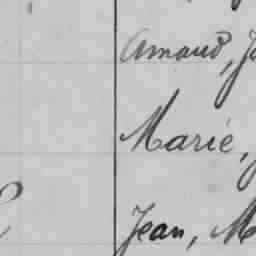 Amand, J
Marie,
Jean, M